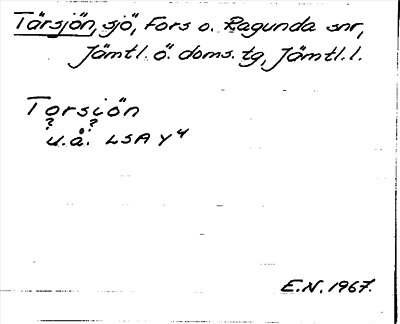 Tärsjön, sjö, Fors o. Ragunda snr,
Jämtl. ö. doms. tg, Jämtl. l.
Torsiön
? ?
u.å. LSA Y4
E.N. 1967.